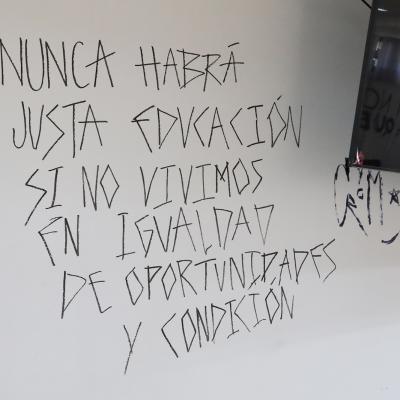 NUNCA HABRÁ
JUSTA EDUCACIÓN
SI NO VIVIMOS
EN IGUALDAD
DE OPORTUNIDADES
Y CONDICIÓN